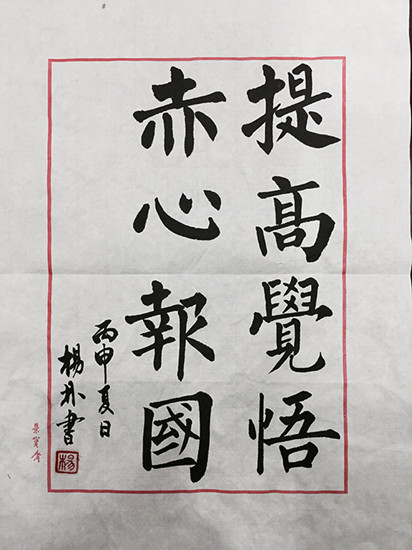 提高覺悟
赤心報國
丙申夏日
楊
書
楊